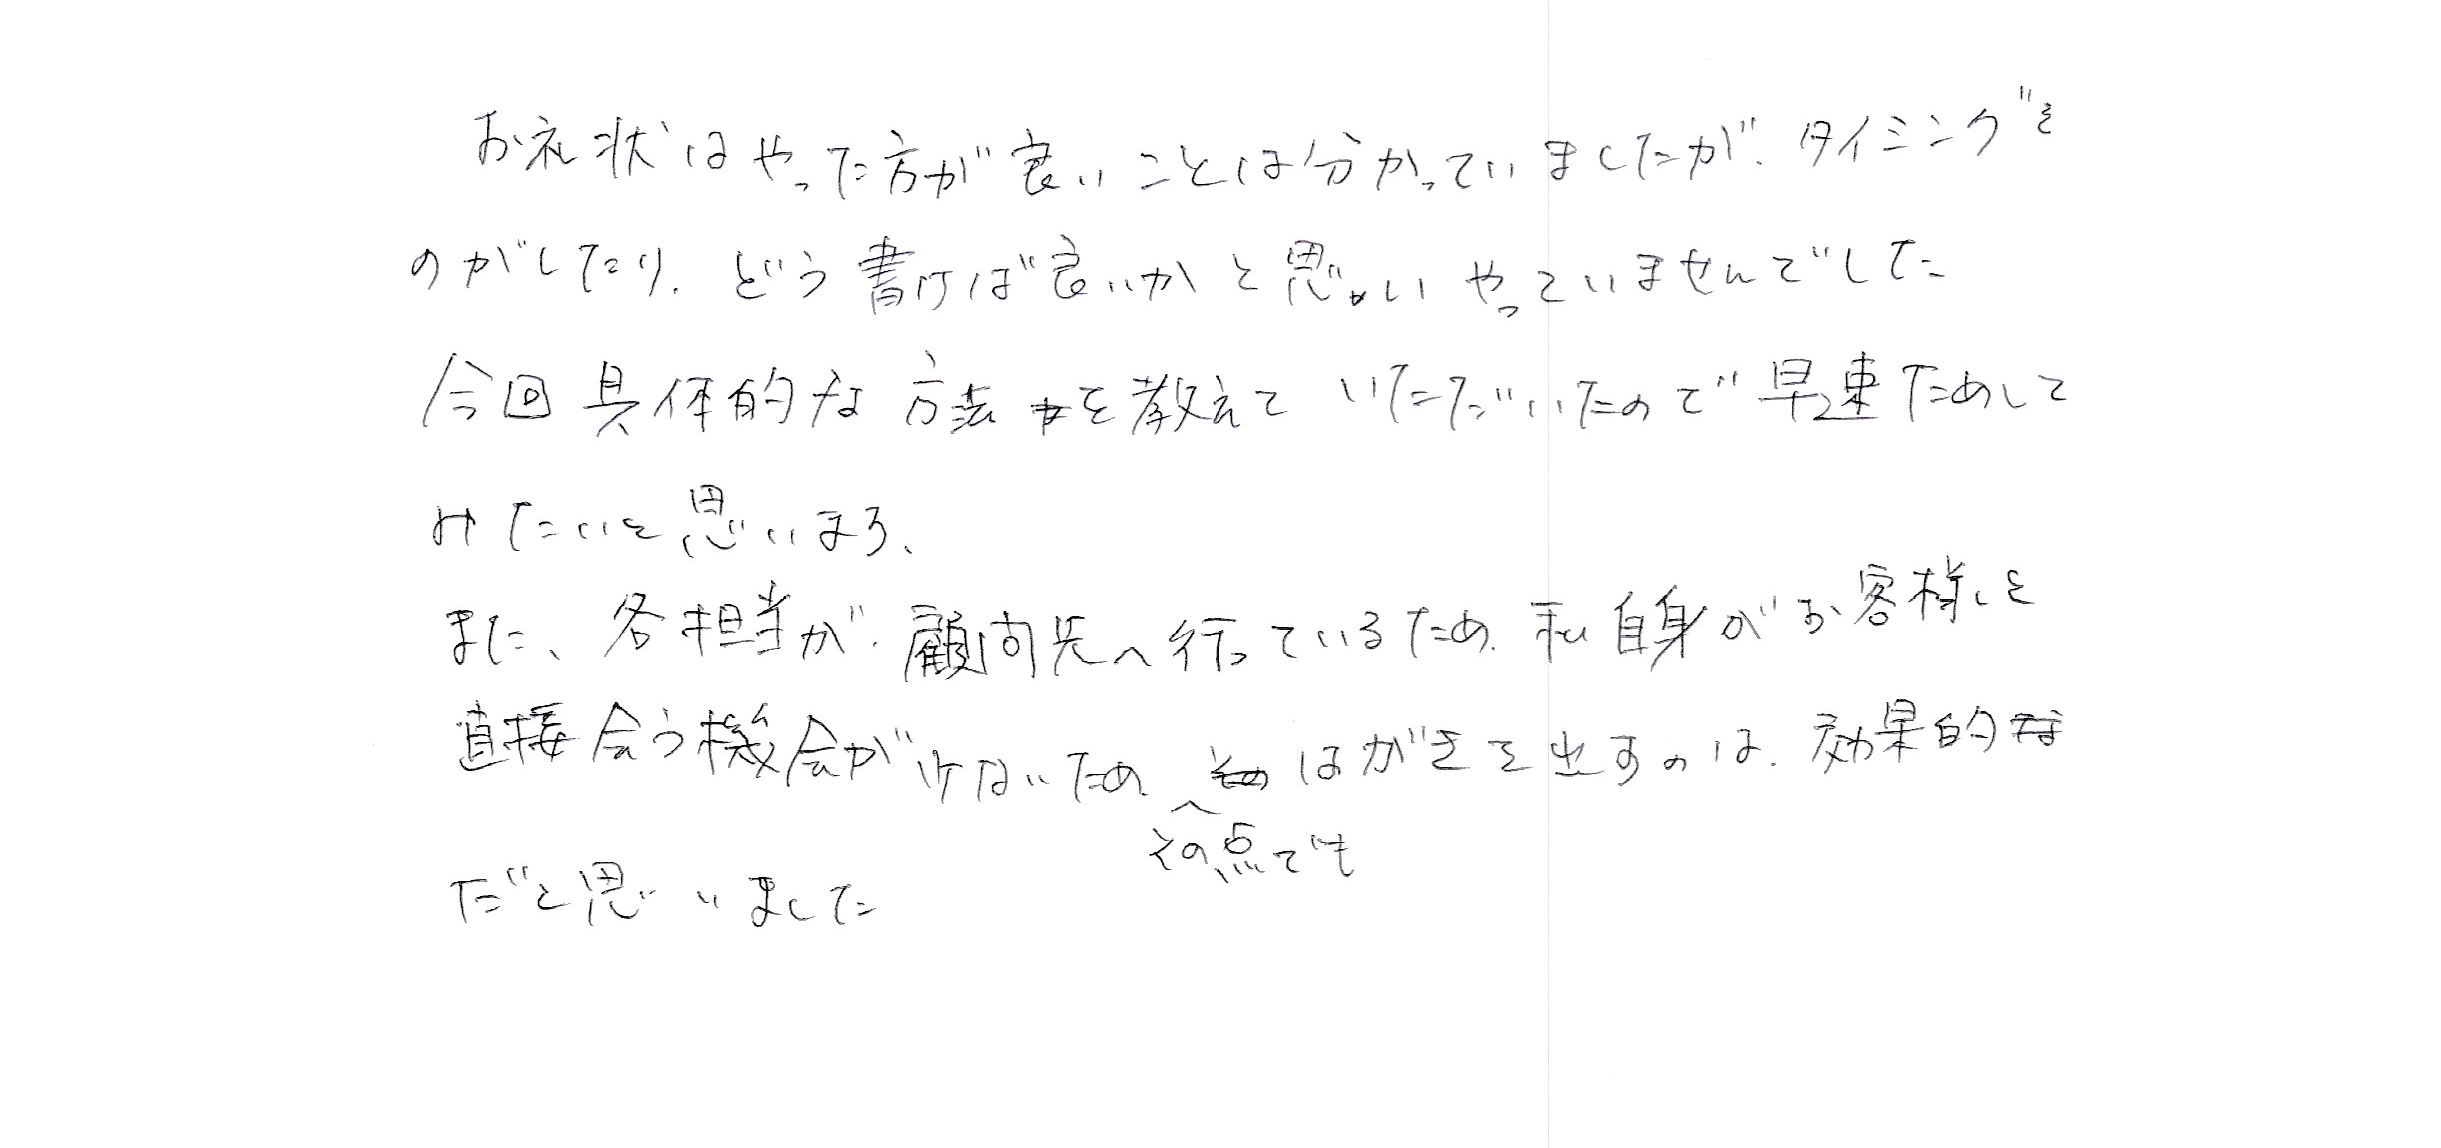 お礼状はやった方が良いことは分かっていましたが、タイミングを
のがしたり、どう書けば良いかと思い やっていませんでした
今回具体的な方法を教えていただいたので早速ためして
みたいと思います、
また、各担当が、顧問先へ行っているため、私自身がお客様と
直接会う機会が少ないため はがきを出すのは、効果的
その点でも
だと思いました